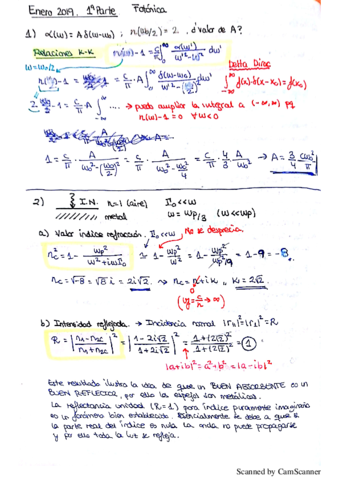 Enero 2019. 1ª Parte Fotónica
1) α(ω) = A δ(ω-ω₀) ; n(ω₀/2) = 2. ¿valor de A?
Relaciones K-K n(ω)-1 = c/π ∫₀^∞ α(ω')/(ω'²-ω²) dω'
ω = ω₀/2 Delta Dirac
n(ω₀/2)-1 = c/π A ∫₀^∞ δ(ω'-ω₀)/(ω'²-ω²) dω' ∫_{-∞}^{∞} f(x)·δ(x-x₀) = f(x₀)
2-1 = c/π · A ∫_{-∞}^{∞} .... → puedo ampliar la integral a (-∞,∞) pq
n(ω)-1 = 0 ∀ω<0
1 = c/π · A/(ω₀²-(ω₀/2)²) = c/π · A/(ω₀²-ω₀²/4) = c/π · 4/3 · A/ω₀² → A = 3/4 ω₀²π/c
2) I.N. n=1 (aire) Γ₀ << ω
metal ω = ωp/3 (ω << ωp)
a) Valor índice refracción. Γ₀ << ω No se desprecia.
n_c² = 1 - ωp²/(ω²+iωΓ₀) ≈ 1 - ωp²/ω² = 1 - ωp²/(ωp²/9) = 1-9 = -8
n_c = √-8 = √8 i = 2i√2. → n_c = n + iκ, κ = 2√2.
(v = c/n → ∞)
b) Intensidad reflejada. → Incidencia normal |r_∥|² = |r_⊥|² = R
R = |(n₁-n₂c)/(n₁+n₂c)|² = |(1-2i√2)/(1+2i√2)|² = (1+(2√2)²)/(1+(2√2)²) = 1
|a+ib|² = a²+b² = |a-ib|²
Este resultado ilustra la idea de que un BUEN ABSORBENTE es un
BUEN REFLECTOR, por ello los espejos son metálicos.
La reflectancia unidad (R=1) para índice puramente imaginario
es un fenómeno bien establecido. Esencialmente se debe a que si
la parte real del índice es nula la onda no puede propagarse
y por ello toda la luz se refleja.
Scanned by CamScanner